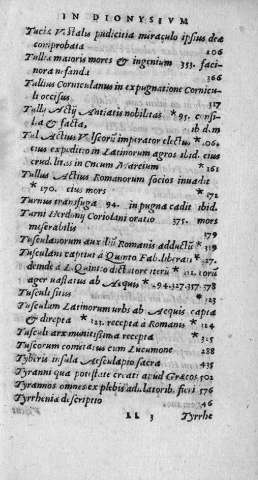 IN DIONYSIVM
Tuciæ Vestalis pudicitia miraculo ipsius deæ
comprobata 206
Tulliæ maioris mores & ingenium 353. faci-
nora nefanda 366
Tullius Corniculanus in expugnatione Cornicu-
li occisus 317
Tulli Actij Antiatis nobilitas * 95. consi-
lia & facta, ibidem
Tullius Actius Volscorũ imperator electus * 106.
eius expeditio in Latinorum agros ibid. eius
crudelitas in Cneum Martium * 161
Tullus Actius Romanorum socios inuadit
* 170. eius mors * 171
Turnus transfuga 94. in pugna cadit ibid.
Turni Herdonij Coriolani oratio 375. mors
miserabilis 379
Tusculanorum auxiliũ Romanis adductũ * 319
Tusculani capti à Quinto Fab. liberati * 27.
deinde à L. Quintio dictatore iterũ * 112. eorũ
ager uastatus ab Aequis * 294.327.357.378
Tusculi situs * 123
Tusculum Latinorum urbs ab Aequis capta
& direpta * 123. recepta à Romanis * 124
Tusculi arx munitissima recepta * 325
Tuscorum comitatus cum Lucumone 288
Tyberis insula Aesculapio sacra 435
Tyranni qua potestate creati apud Græcos 502
Tyrannos omnes ex plebis adulatorib. fieri 576
Tyrrhenia descriptio 46
LL 3 Tyrrhe